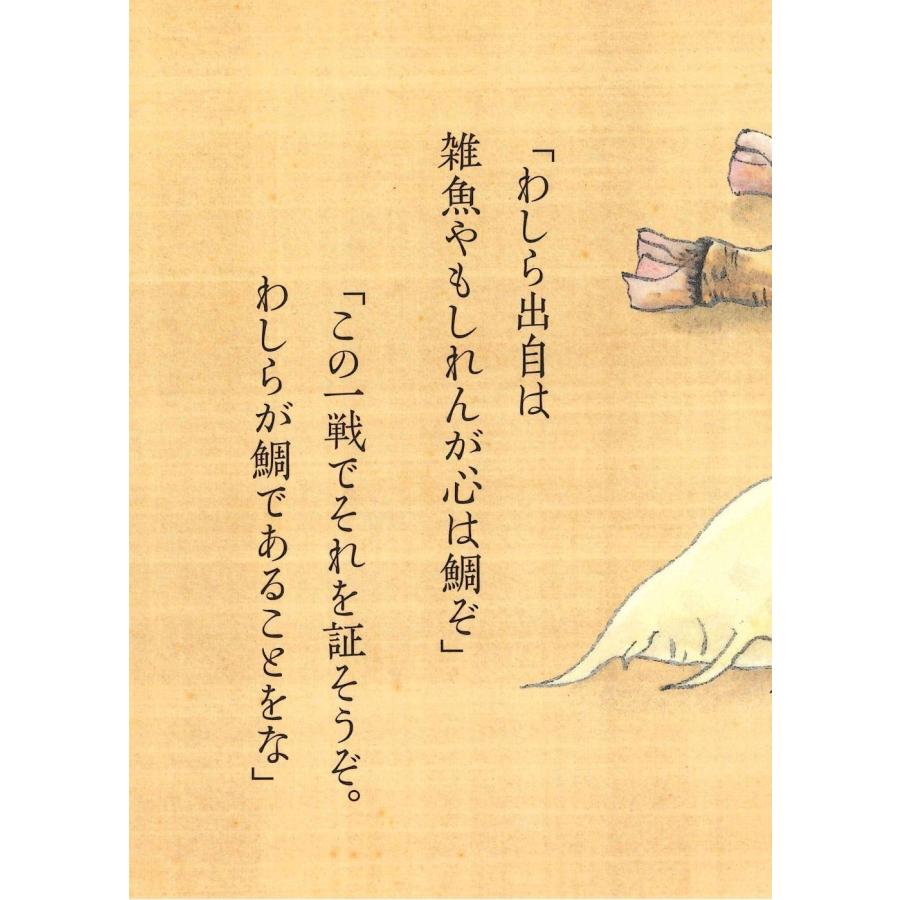 「わしら出自は
雑魚やもしれんが心は鯛ぞ」
「この一戦でそれを証そうぞ。
わしらが鯛であることをな」